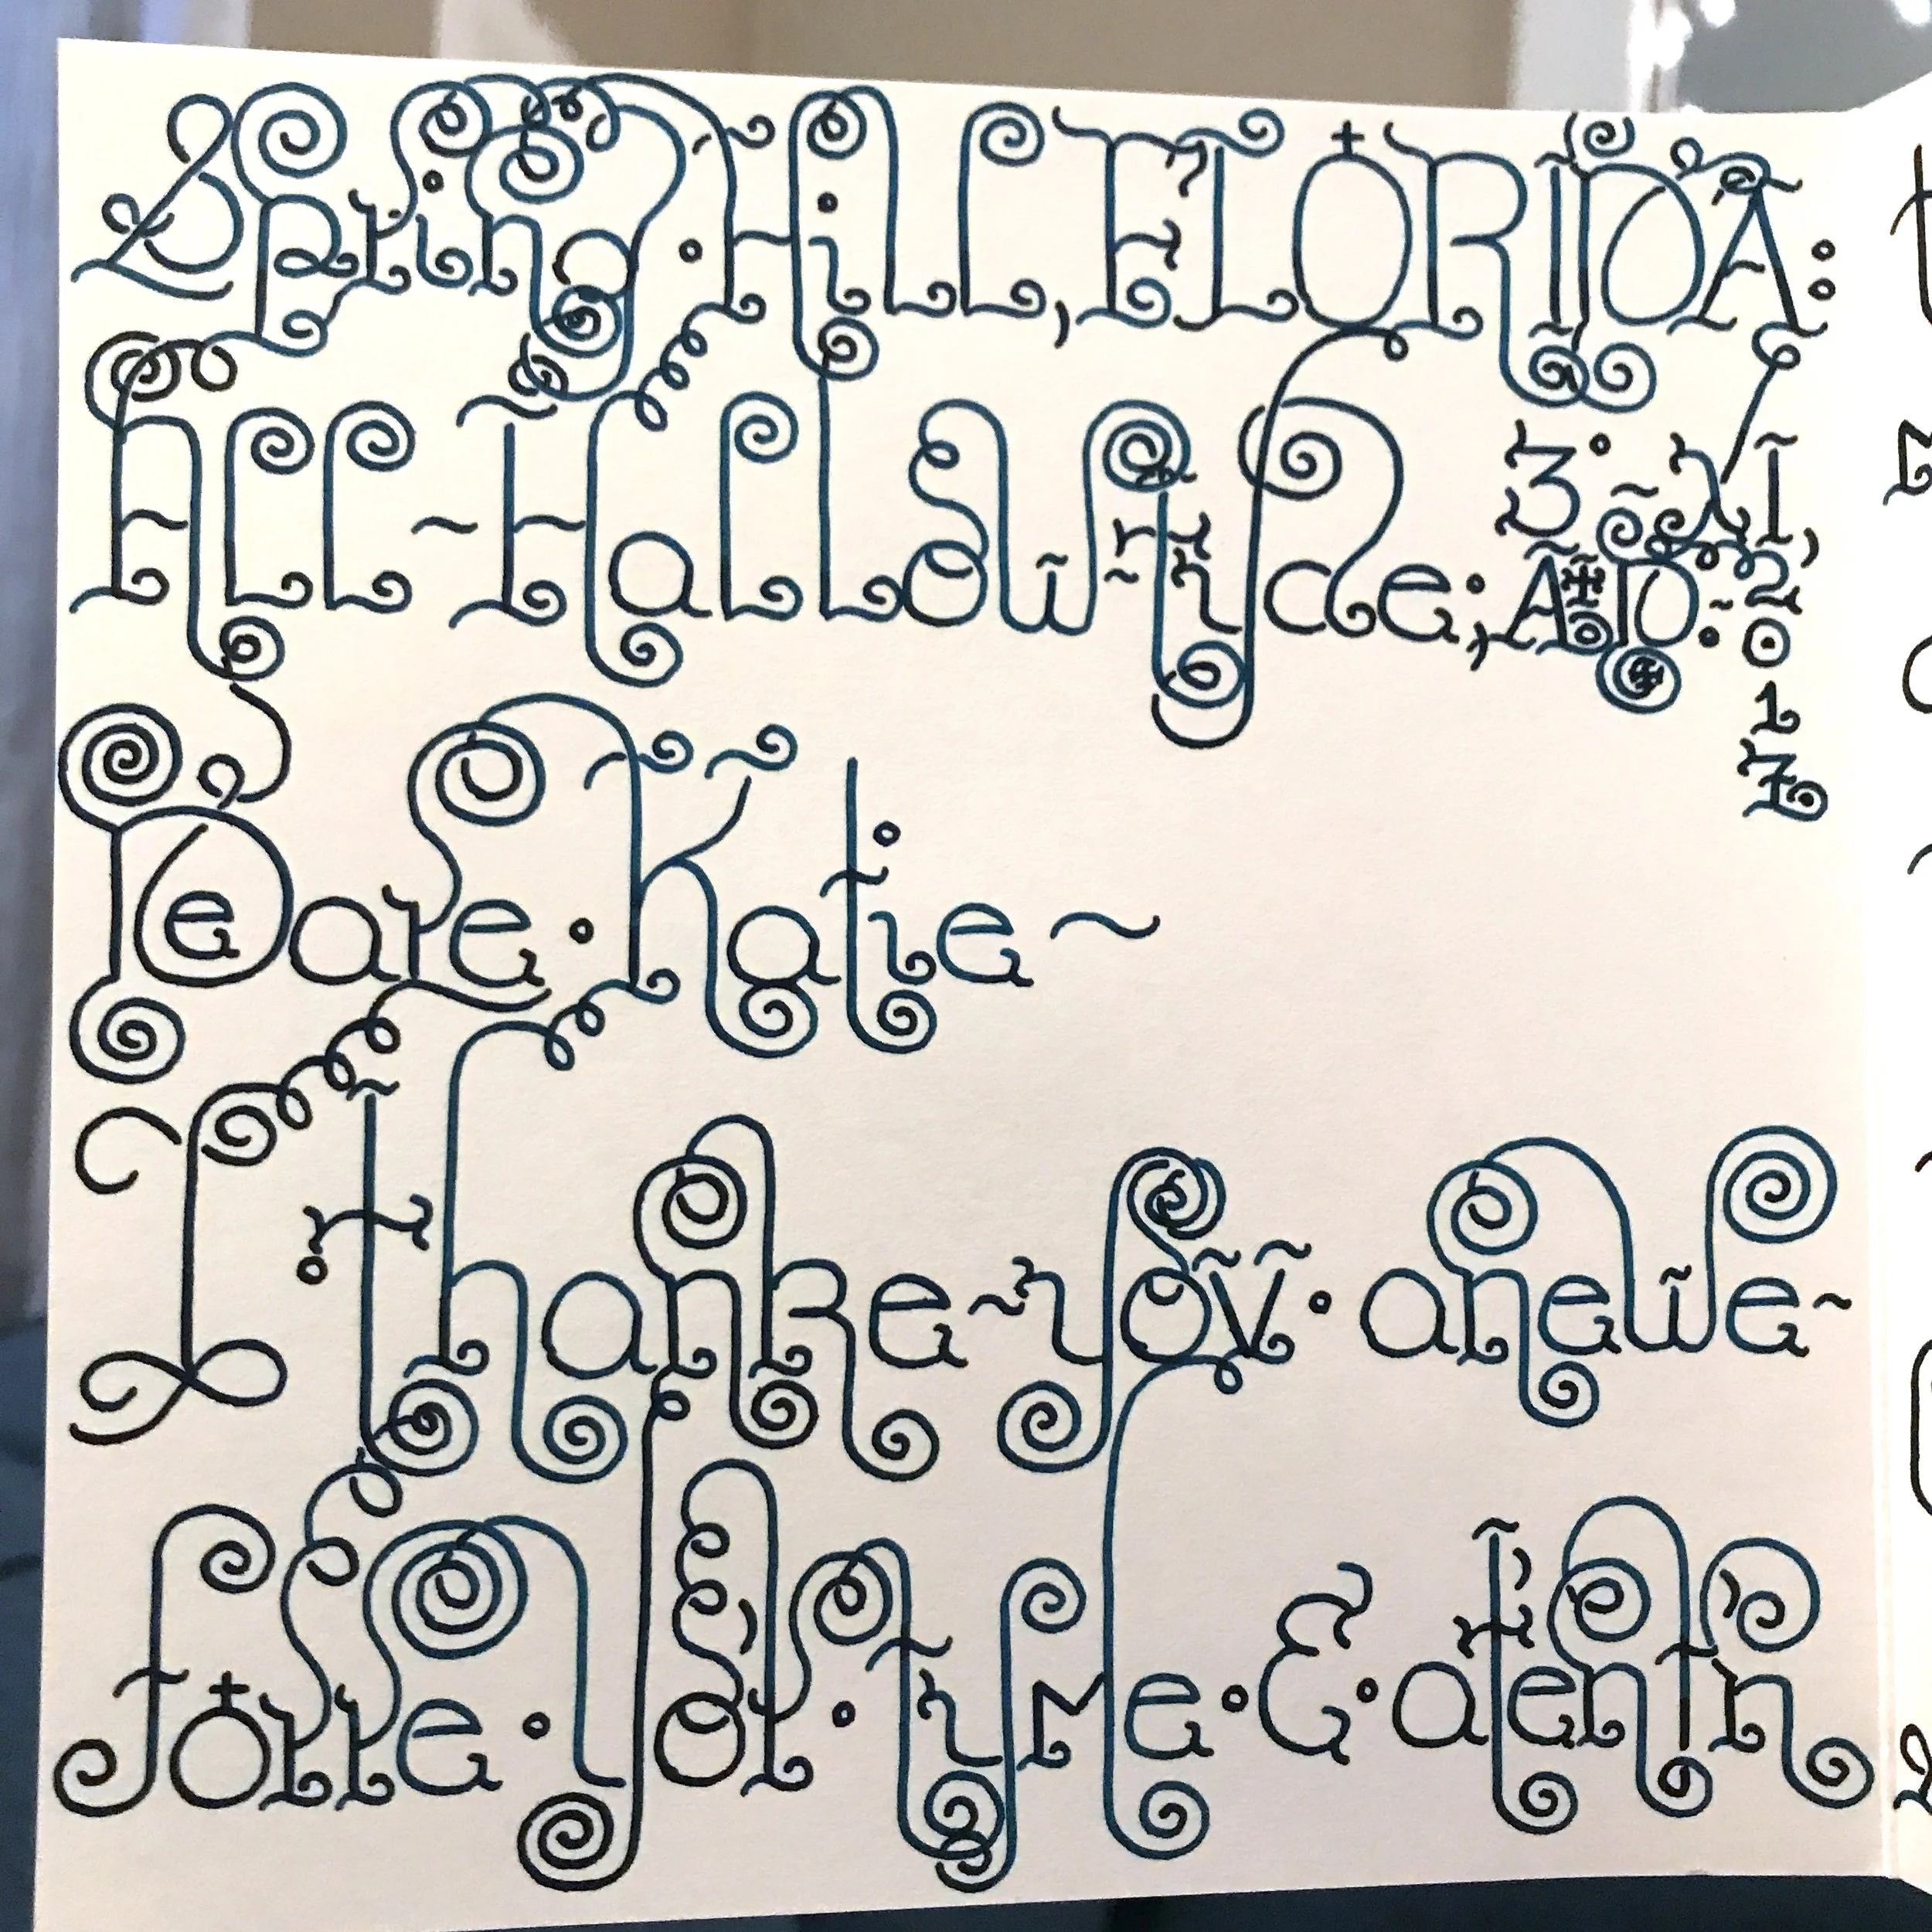 Spring · Hill, FLORIDA:
ALL ~ HaLLowtyde; 3° XI, A·D: 2017
Deare · Katie ~
I thanke ~ yov · anewe ~
forre · yor · tyme · &